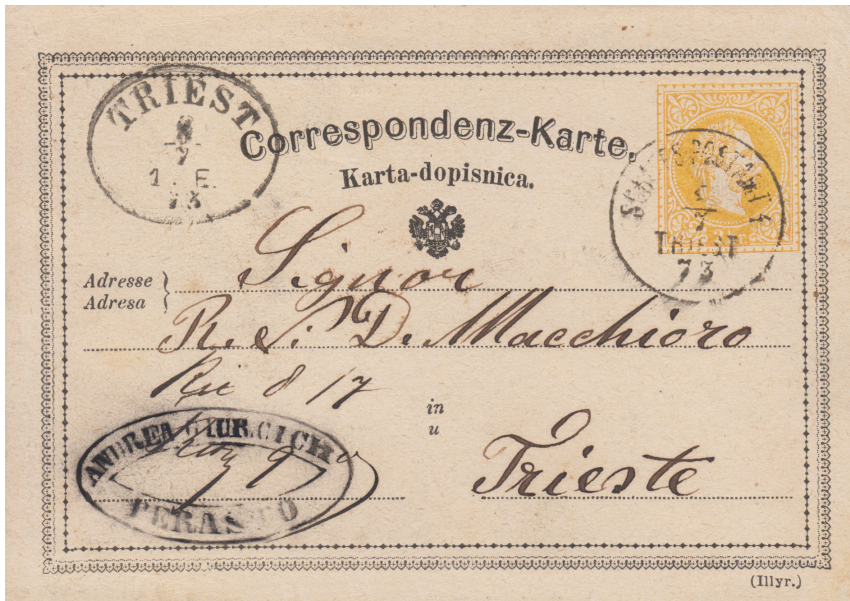 TRIEST
8
7
1. E.
73
Correspondenz-Karte.
Karta-dopisnica.
POSTAMT
7
TRIEST
73
Adresse
Adresa
Signor
R. S. D. Macchioro
8 17
in
u
Trieste
ANDREA GIURCICH
9
PERASTO
(Illyr.)